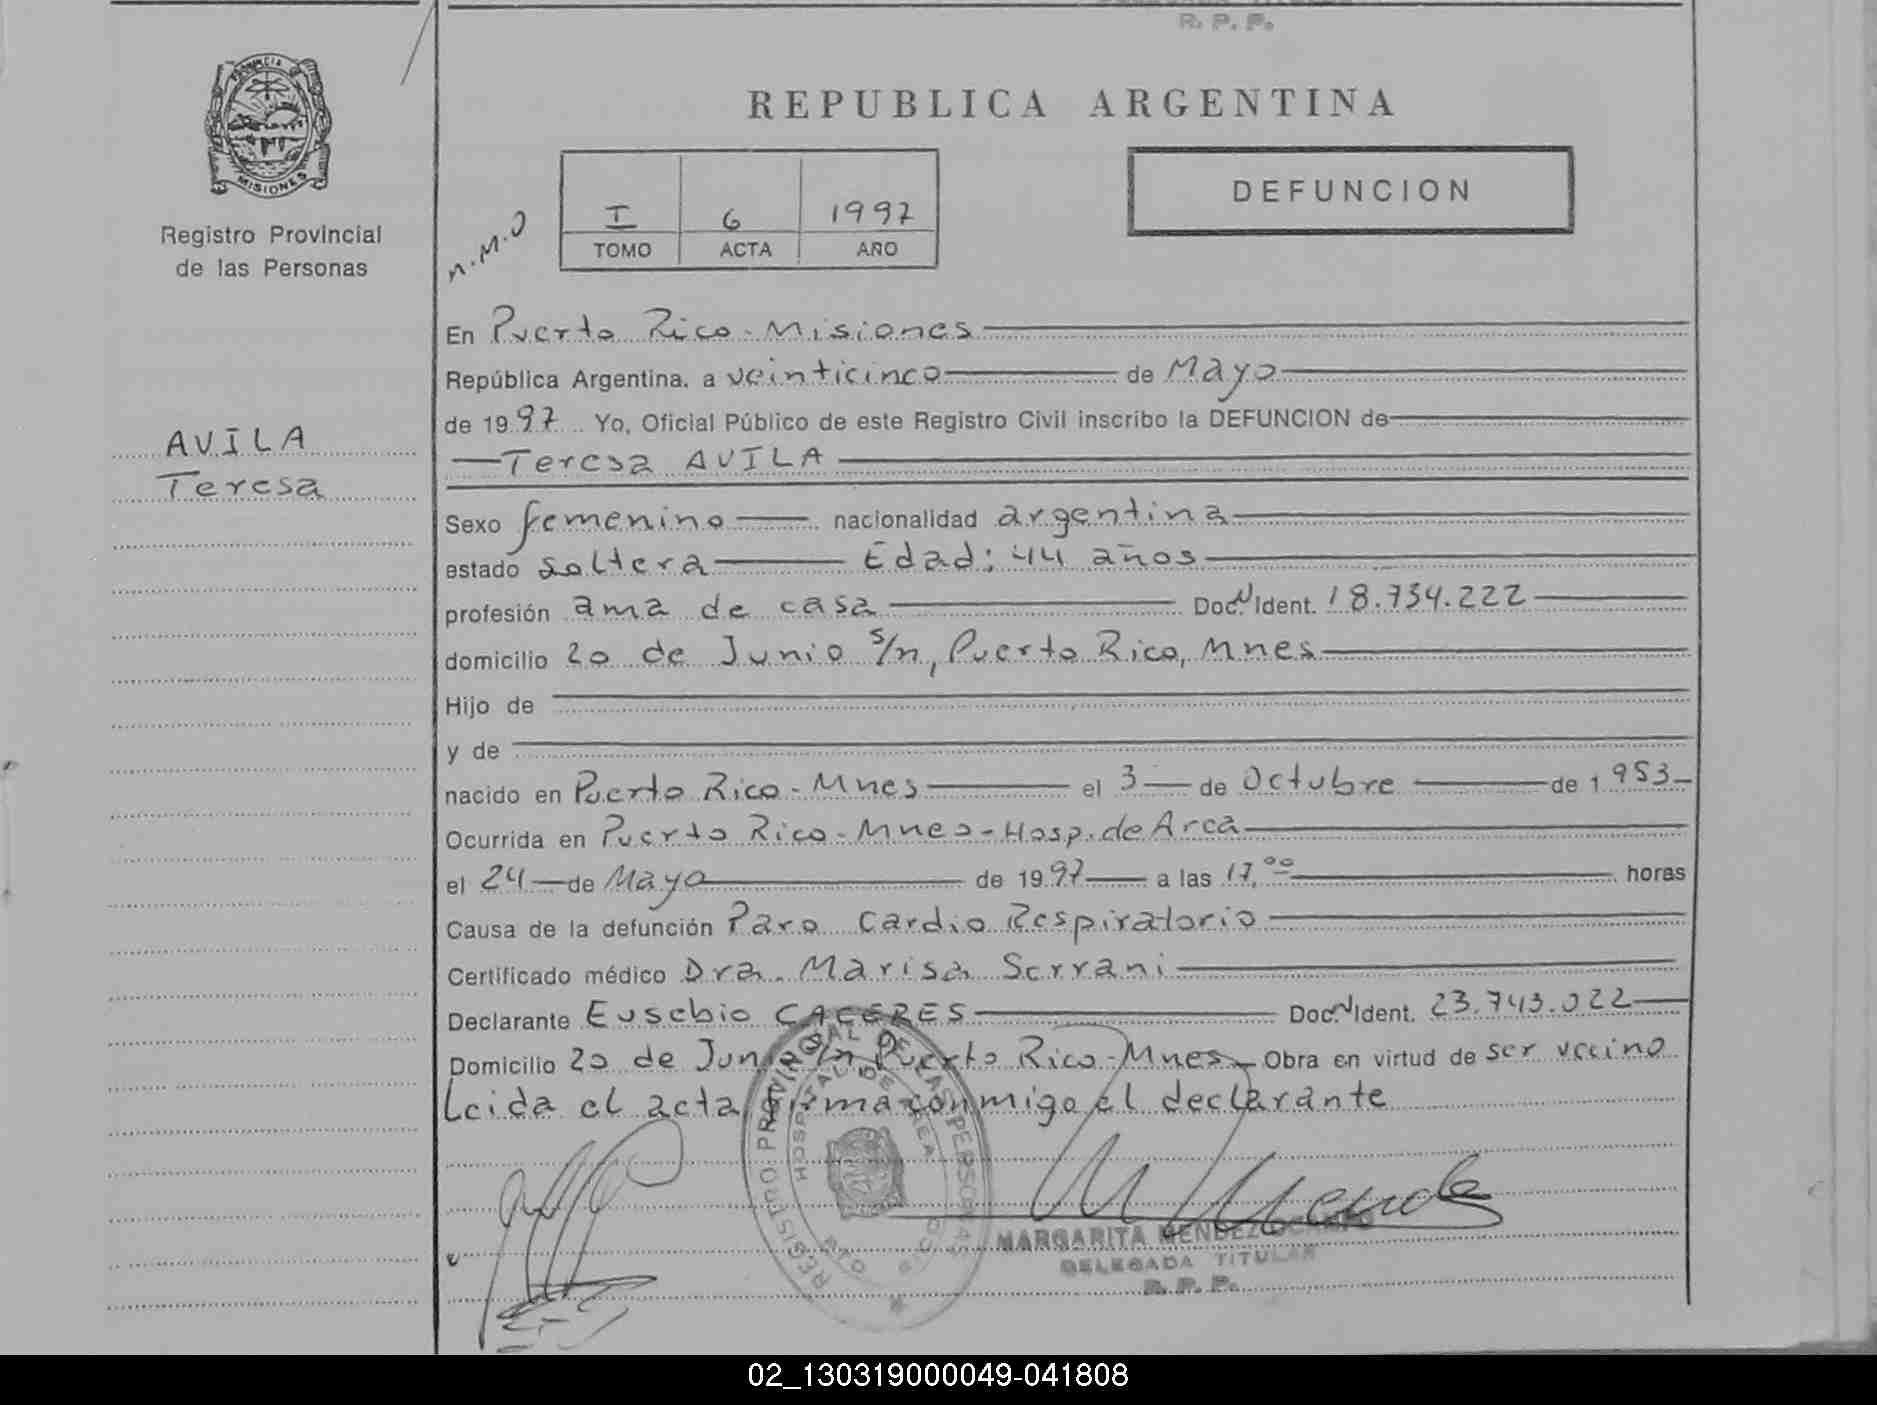 R. P. P.
PROVINCIA
MISIONES
Registro Provincial
de las Personas
AVILA
Teresa
REPUBLICA ARGENTINA
DEFUNCION
n.M.O
I 6 1997
TOMO ACTA AÑO
En Puerto Rico - Misiones
República Argentina, a veinticinco de Mayo
de 1997 Yo, Oficial Público de este Registro Civil inscribo la DEFUNCION de
Teresa AVILA
Sexo femenino nacionalidad argentina
estado soltera Edad: 44 años
profesión ama de casa Doc. N Ident. 18.734.222
domicilio 20 de Junio s/n, Puerto Rico, Mnes
Hijo de
y de
nacido en Puerto Rico - Mnes el 3 de Octubre de 1953
Ocurrida en Puerto Rico - Mnes - Hosp. de Area
el 24 de Mayo de 1997 a las 17,00 horas
Causa de la defunción Paro Cardio Respiratorio
Certificado médico Dra. Marisa Serrani
Declarante Eusebio CACERES Doc. N Ident. 23.743.022
Domicilio 20 de Junio s/n Puerto Rico - Mnes Obra en virtud de ser vecino
Leida el acta, firma conmigo el declarante
REGISTRO PROVINCIAL DE LAS PERSONAS
HOSPITAL DE AREA
PTO RICO
MARGARITA MENDEZ OCAMPO
DELEGADA TITULAR
R. P. P.
02_130319000049-041808